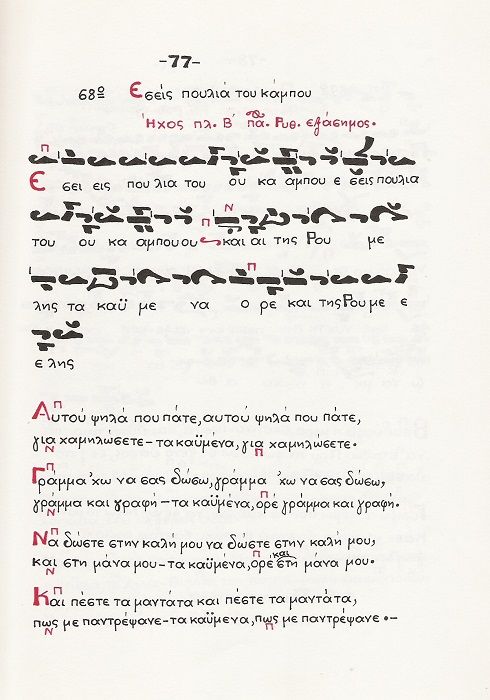 -77-
68ο Εσείς πουλιά του κάμπου
Ήχος πλ. Β΄ πα. Ρυθ. εξάσημος.
Π
Ε σει εις που λια του ου κα αμπου ε σεις πουλια
Ν
του ου κα αμπου ου Π και αι της Ρου με
Π
λης τα καϋ με να ο ρε και της Ρου με ε
ε λης
Π
Αυτού ψηλά που πάτε, αυτού ψηλά που πάτε,
για χαμηλώσετε – τα καϋμένα, για χαμηλώσετε.
Ν Π
Π
Γράμμα 'χω να σας δώσω, γράμμα 'χω να σας δώσω,
γράμμα και γραφή – τα καϋμένα, ορέ γράμμα και γραφή.
Ν Π
Π
Να δώστε στην καλή μου να δώστε στην καλή μου,
και στη μάνα μου – τα καϋμένα, ορέ και στη μάνα μου.
Ν Π
Π
Και πέστε τα μαντάτα και πέστε τα μαντάτα,
πως με παντρέψανε – τα καϋμένα, πως με παντρέψανε . –
Ν Π